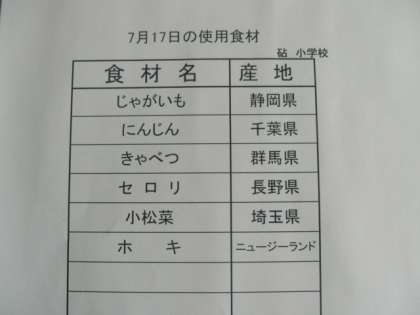 7月17日の使用食材
砧 小学校
食材名 産地
じゃがいも 静岡県
にんじん 千葉県
きゃべつ 群馬県
セロリ 長野県
小松菜 埼玉県
ホキ ニュージーランド